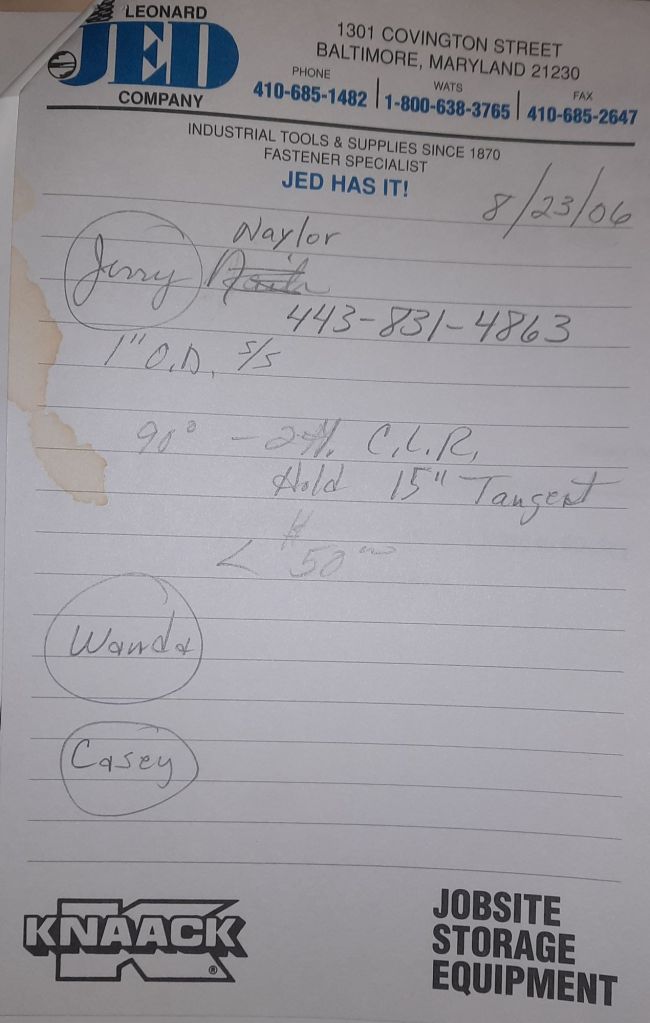 LEONARD
JED
COMPANY
1301 COVINGTON STREET
BALTIMORE, MARYLAND 21230
PHONE WATS FAX
410-685-1482 1-800-638-3765 410-685-2647
INDUSTRIAL TOOLS & SUPPLIES SINCE 1870
FASTENER SPECIALIST
JED HAS IT!
8/23/06
Naylor
Jerry
443-831-4863
1" O.D. s/s
90° - C.L.R.
Hold 15" Tangent
< $50
Wanda
Casey
KNAACK
®
JOBSITE
STORAGE
EQUIPMENT